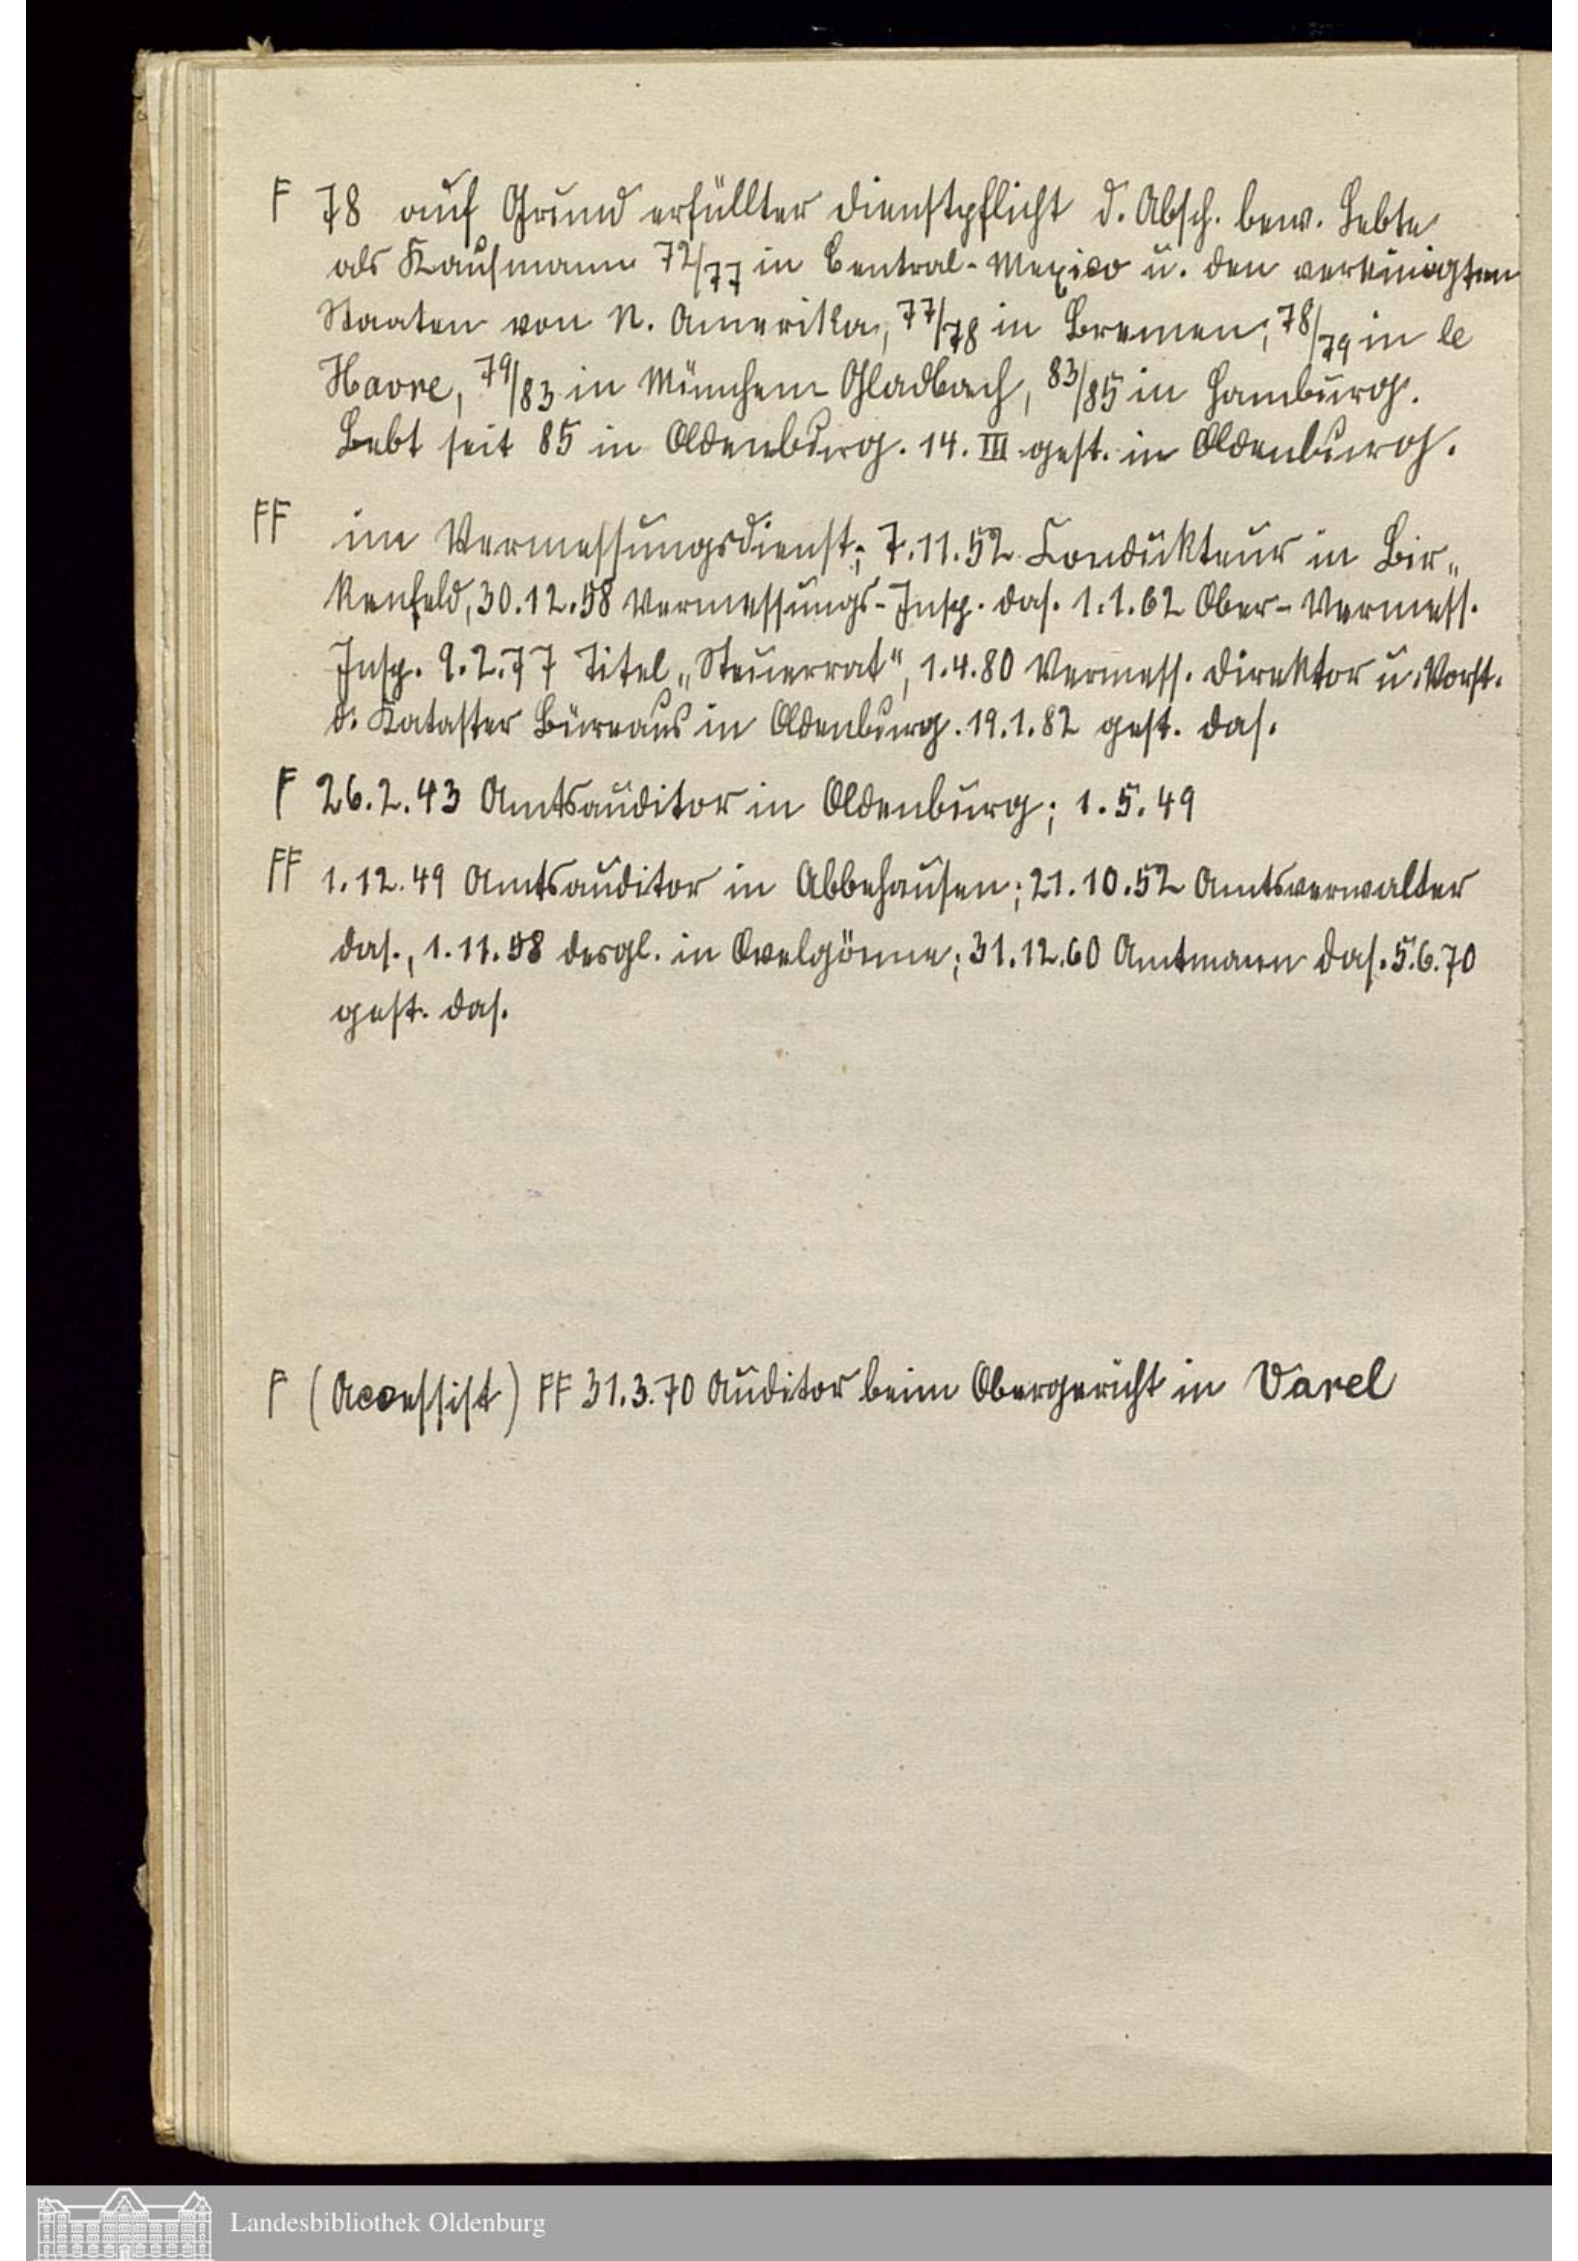 F 78 auf Grund erfüllter Dienstpflicht d. Absch. bew. Lebte
als Kaufmann 72/77 in Central-Mexico u. den vereinigten
Staaten von N. Amerika, 77/78 in Bremen, 78/79 in le
Havre, 79/83 in München-Gladbach, 83/85 in Hamburg.
Lebt seit 85 in Oldenburg. 14. III gest. in Oldenburg.
FF im Vermessungsdienst; 7.11.52 Condukteur in Bir„
kenfeld, 30.12.58 Vermessungs-Insp. das. 1.1.62 Ober-Vermess.
Insp. 9.2.77 Titel „Steuerrat", 1.4.80 Vermess. Direktor u. Vorst.
d. Kataster Büreaus in Oldenburg. 19.1.82 gest. das.
F 26.2.43 Amtsauditor in Oldenburg; 1.5.49
FF 1.12.49 Amtsauditor in Abbehausen; 21.10.52 Amtsverwalter
das., 1.11.58 desgl. in Ovelgönne; 31.12.60 Amtmann das. 5.6.70
gest. das.
F (Accessist) FF 31.3.70 Auditor beim Obergericht in Varel
Landesbibliothek Oldenburg